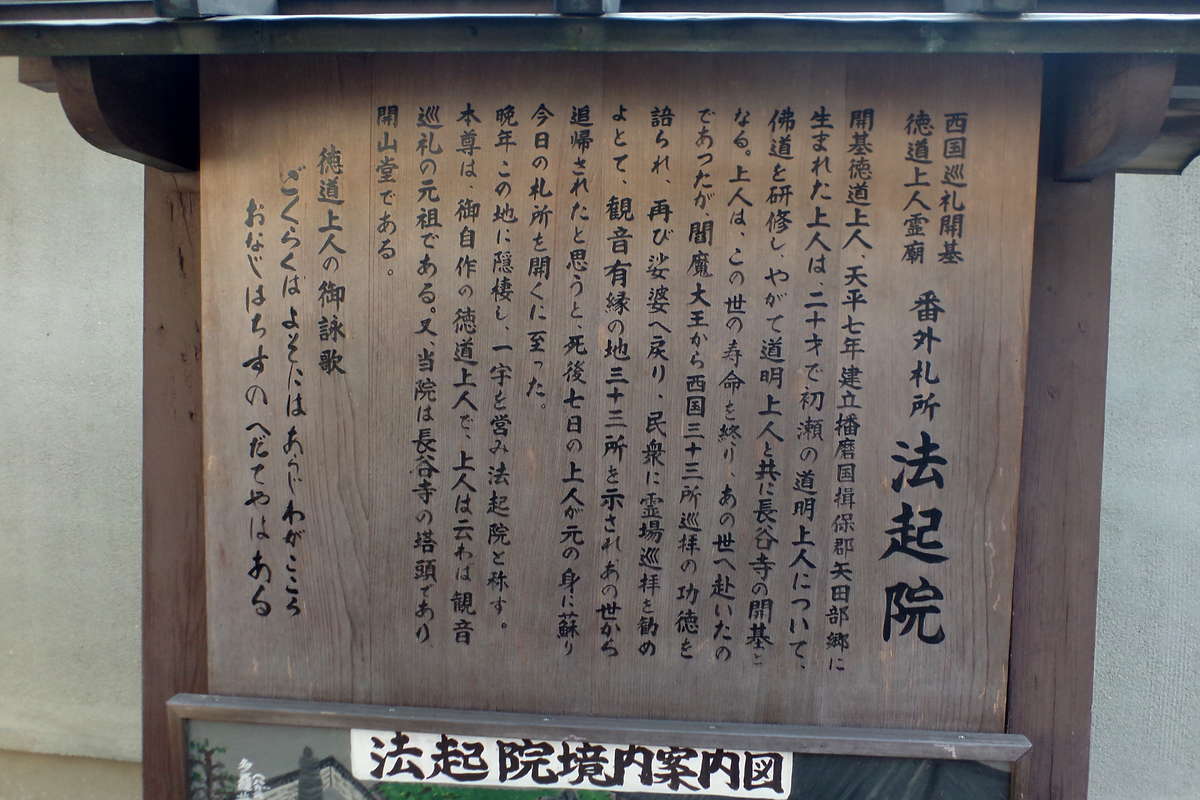 西国巡礼開基
徳道上人霊廟
番外札所 法起院
開基徳道上人、天平七年建立播磨国揖保郡矢田部郷に
生まれた上人は、二十才で初瀬の道明上人について、
佛道を研修し、やがて道明上人と共に長谷寺の開基と
なる。上人は、この世の寿命を終り、あの世へ赴いたの
であつたが、閻魔大王から西国三十三所巡拝の功徳を
語られ、再び娑婆へ戻り、民衆に霊場巡拝を勧め
よとて、観音有縁の地三十三所を示され、あの世から
追帰されたと思うと、死後七日の上人が元の身に蘇り
今日の札所を開くに至った。
晩年この地に隠棲し、一宇を営み法起院と称す。
本尊は、御自作の徳道上人で、上人は云わば観音
巡礼の元祖である。又、当院は長谷寺の塔頭であり、
開山堂である。
徳道上人の御詠歌
ごくらくはよそにはあらじわがこころ
おなじはちすのへだてやはある
法起院境内案内図